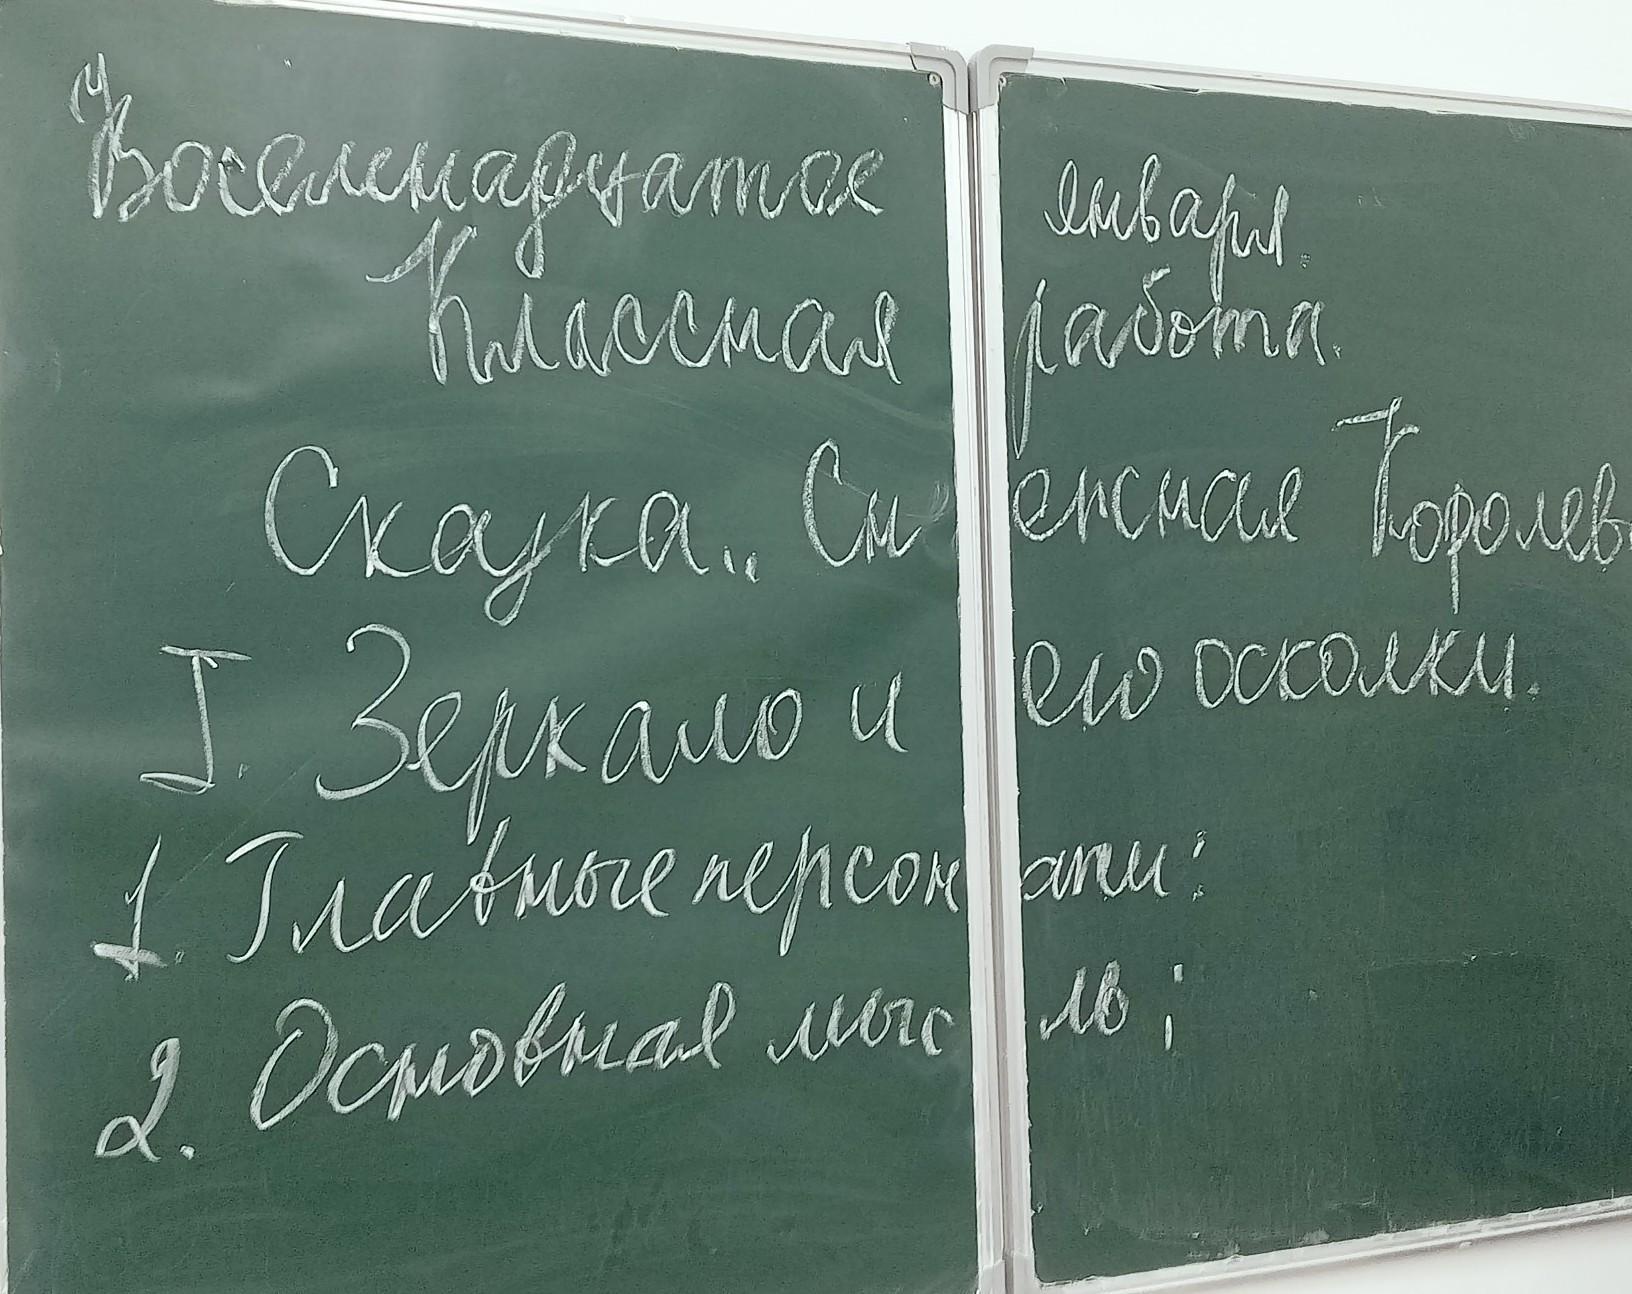 Восемнадцатое января.
Классная работа.
Сказка „Снежная Королев
I. Зеркало и его осколки.
1. Главные персонажи:
2. Основная мысль;